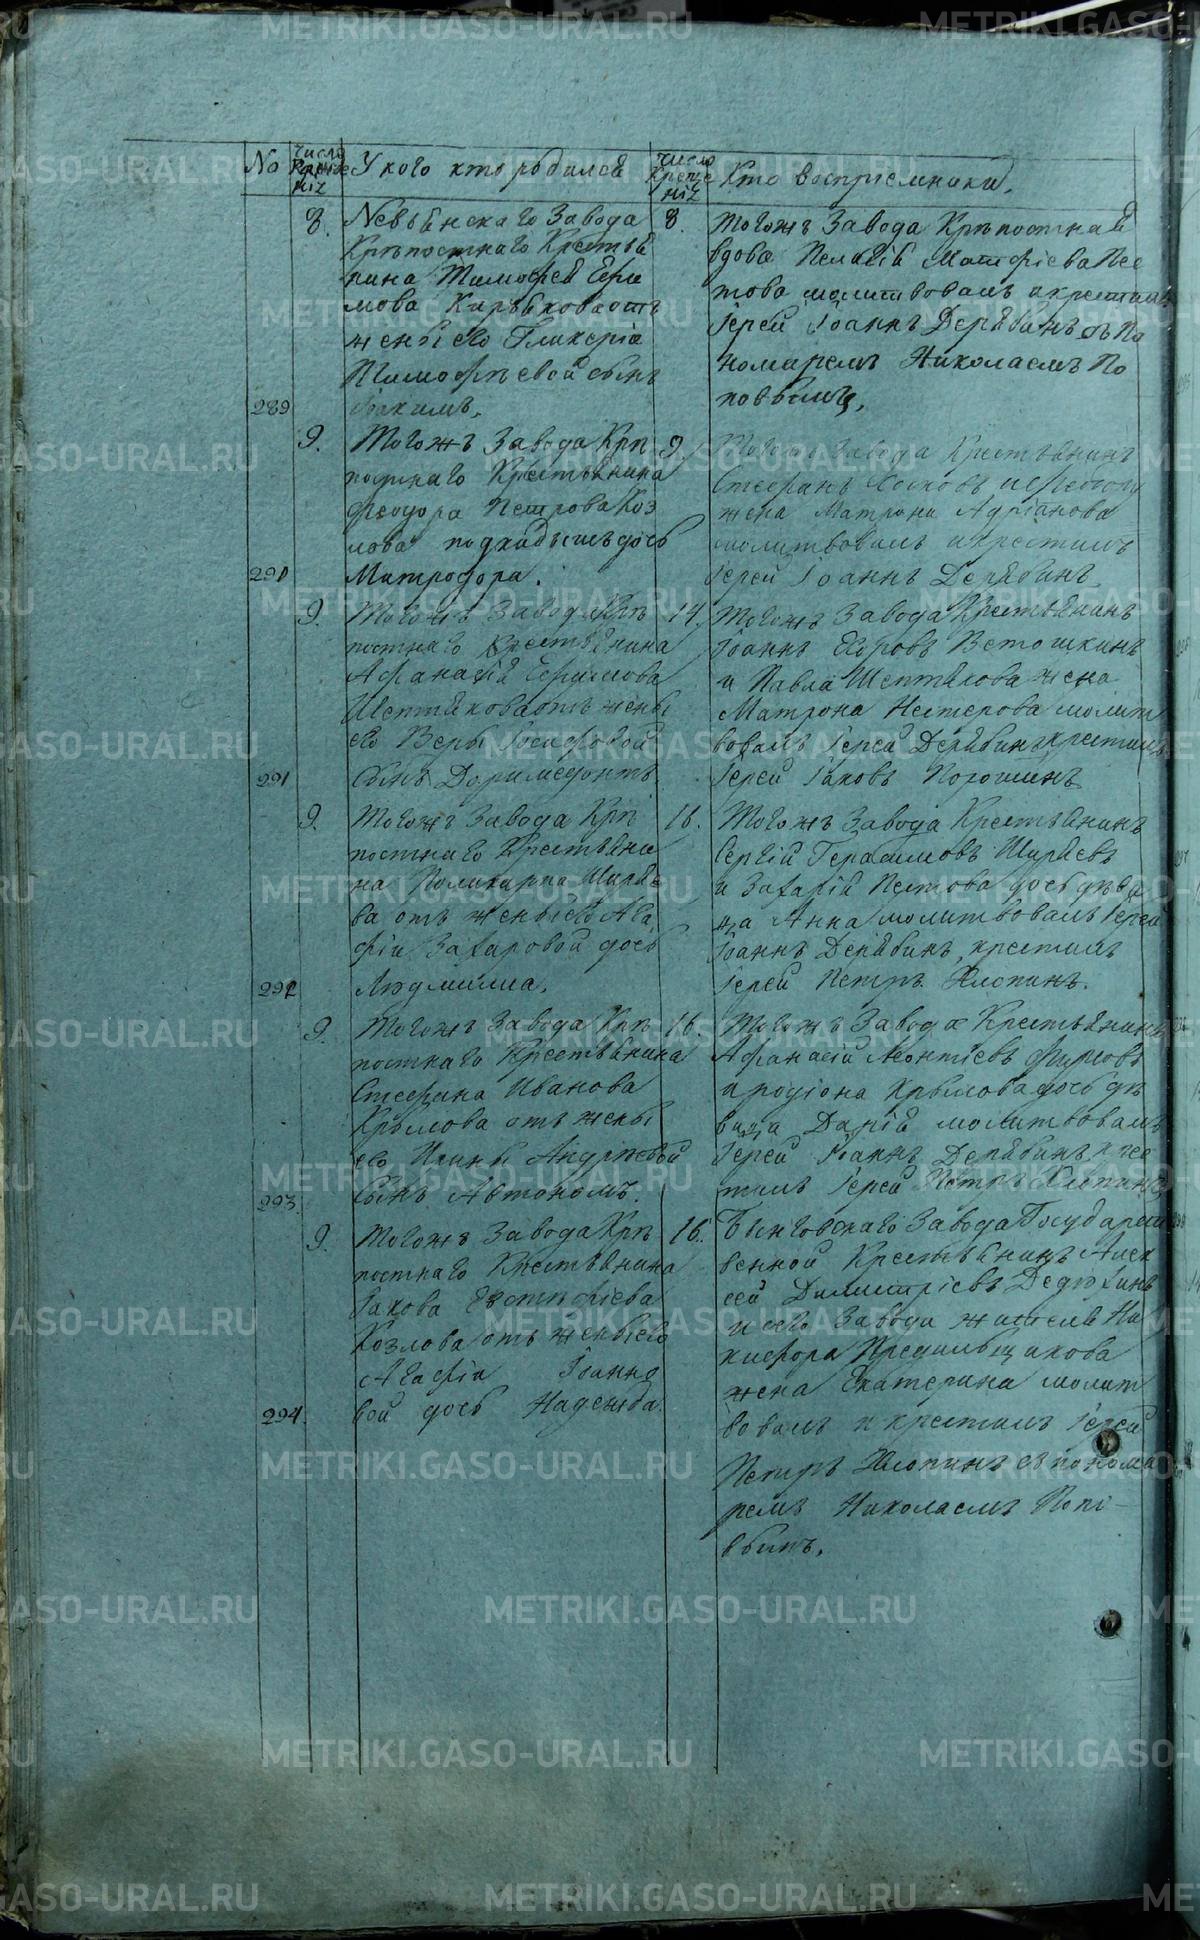 No
Число рождения
У кого кто родился
Число крещенія
Кто воспріемники.
8. Невьянскаго Завода
Крѣпостнаго Крестья
нина Тимофея Ефи
мова от
жены его Гликеріи
Тимофѣевой сынъ
289 Іоакимъ.
8. Тогожъ Завода Крѣпостная
вдова Пелагія Матфіева Пес
това молитвовалъ и крестилъ
Іерей Іоаннъ Дерябинъ съ По
номаремъ Николаемъ По
повымъ.
9. Тогожъ Завода Крѣ
постнаго Крестьянина
Феодора Петрова Коз
лова дочь
290 Митродора.
9. Тогожъ Завода Крестьянинъ
Стефанъ
жена Матрона Адріанова
молитвовалъ и крестилъ
Іерей Іоаннъ Дерябинъ
9. Тогожъ Завода Крѣ
постнаго Крестьянина
Афанасія
от жены
его Веры Іосифовой
291 Сынъ Доримедонтъ
14. Тогожъ Завода Крестьянинъ
Іоаннъ Егоровъ Ветошкинъ
и Павла жена
Матрона Нестерова молит
вовалъ Іерей Дерябинъ крестилъ
Іерей Іаковъ Порошинъ
9. Тогожъ Завода Крѣ
постнаго Крестьяни
на Поликарпа Ширяе
ва отъ жены его Ага
фіи Захаровой дочь
292 Людмилла.
16. Тогожъ Завода Крестьянинъ
Сергій Герасимовъ Ширяевъ
и Захарія Пестова дочь дѣви
ца Анна молитвовалъ Іерей
Іоаннъ Дерябинъ, крестилъ
Іерей Петръ Хлопинъ.
9. Тогожъ Завода Крѣ
постнаго Крестьянина
Стефана Иванова
Крылова отъ жены
его Андріевой
293. Сынъ Автономъ.
16. Тогожъ Завода Крестьянинъ
Афанасій Леонтіевъ Фирсовъ
и родіона Крылова дочь дѣ
вица Дарія молитвовалъ
Іерей Іоаннъ Дерябинъ кре
тилъ Іерей Петръ Хлопинъ
9. Тогожъ Завода Крѣ
постнаго Крестьянина
Іакова Евстифіева
Козлова отъ жены его
Агафіи Іоанно
294. вой дочь Надежда.
16. Быньговскаго Завода Государст
венной Крестьянинъ Алек
сей Димитріевъ Дедюхинъ
и сего Завода жителя Ни
кифора
жена Екатерина молит
вовалъ и крестилъ Іерей
Петръ Хлопинъ съ понома
ремъ Николаемъ Попо
вымъ.
METRIKI.GASO-URAL.RU